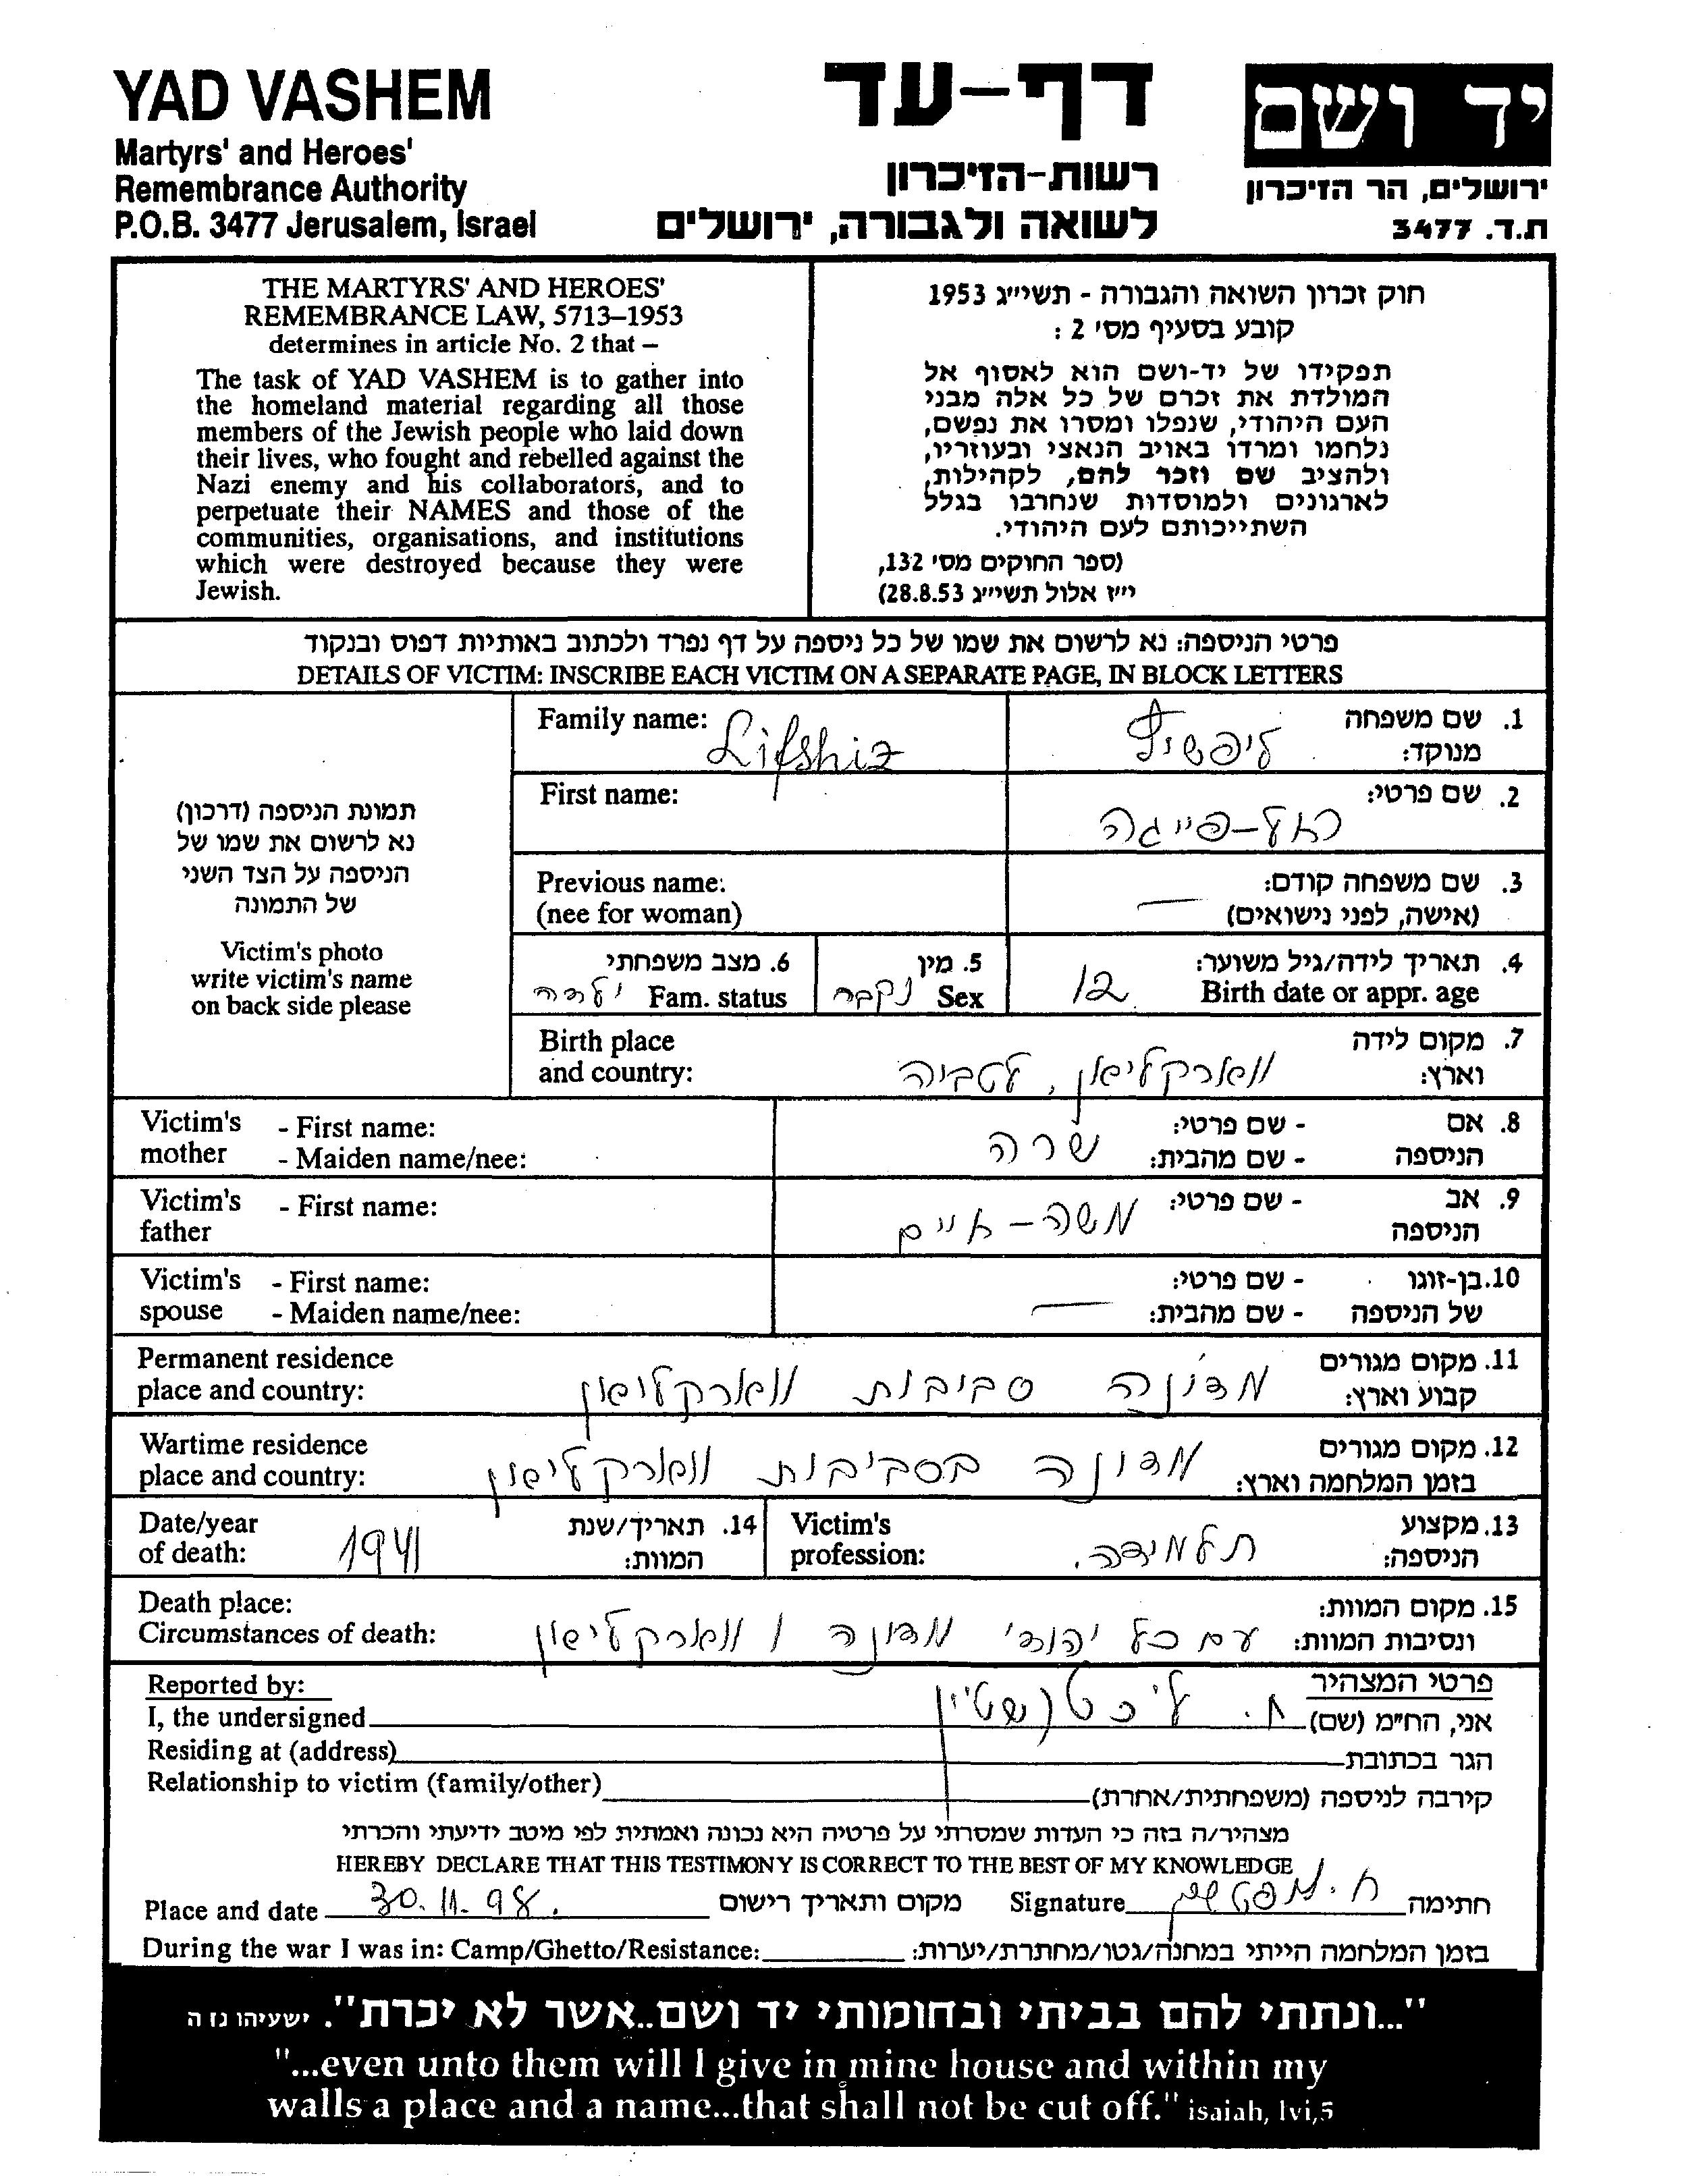 YAD VASHEM
Martyrs' and Heroes'
Remembrance Authority
P.O.B. 3477 Jerusalem, Israel
דף-עד
רשות-הזיכרון
לשואה ולגבורה, ירושלים
יד ושם
ירושלים, הר הזיכרון
ת.ד. 3477
THE MARTYRS' AND HEROES'
REMEMBRANCE LAW, 5713–1953
determines in article No. 2 that –
The task of YAD VASHEM is to gather into
the homeland material regarding all those
members of the Jewish people who laid down
their lives, who fought and rebelled against the
Nazi enemy and his collaborators, and to
perpetuate their NAMES and those of the
communities, organisations, and institutions
which were destroyed because they were
Jewish.
חוק זכרון השואה והגבורה - תשי״ג 1953
קובע בסעיף מס׳ 2 :
תפקידו של יד-ושם הוא לאסוף אל
המולדת את זכרם של כל אלה מבני
העם היהודי, שנפלו ומסרו את נפשם,
נלחמו ומרדו באויב הנאצי ובעוזריו,
ולהציב שם וזכר להם, לקהילות,
לארגונים ולמוסדות שנחרבו בגלל
השתייכותם לעם היהודי.
(ספר החוקים מס׳ 132,
י״ז אלול תשי״ג 28.8.53)
פרטי הניספה: נא לרשום את שמו של כל ניספה על דף נפרד ולכתוב באותיות דפוס ובנקוד
DETAILS OF VICTIM: INSCRIBE EACH VICTIM ON A SEPARATE PAGE, IN BLOCK LETTERS
תמונת הניספה (דרכון)
נא לרשום את שמו של
הניספה על הצד השני
של התמונה
Victim's photo
write victim's name
on back side please
Family name: Lifshiz ליפשיץ 1. שם משפחה
מנוקד:
First name: פייגה 2. שם פרטי:
Previous name: 3. שם משפחה קודם:
(nee for woman) — (אישה, לפני נישואים)
6. מצב משפחתי 5. מין 4. תאריך לידה/גיל משוער:
ילדה Fam. status נקבה Sex 12 Birth date or appr. age
Birth place 7. מקום לידה
and country: ווארקליאן, לטביה וארץ:
Victim's - First name: - שם פרטי: 8. אם
mother - Maiden name/nee: שרה - שם מהבית: הניספה
Victim's - First name: - שם פרטי: 9. אב
father משה - הניספה
Victim's - First name: - שם פרטי: 10. בן-זוגו
spouse - Maiden name/nee: — - שם מהבית: של הניספה
Permanent residence 11. מקום מגורים
place and country: מדונה סביבות ווארקליאן קבוע וארץ:
Wartime residence 12. מקום מגורים
place and country: מדונה בסביבות ווארקליאן בזמן המלחמה וארץ:
Date/year 14. תאריך/שנת Victim's 13. מקצוע
of death: 1941 המוות: profession: תלמידה. הניספה:
Death place: 15. מקום המוות:
Circumstances of death: עם כל יהודי מדונה ו ווארקליאן ונסיבות המוות:
Reported by: פרטי המצהיר
I, the undersigned ח. ליכטנשטיין אני, הח״מ (שם)
Residing at (address) הגר בכתובת
Relationship to victim (family/other) קירבה לניספה (משפחתית/אחרת)
מצהיר/ה בזה כי העדות שמסרתי על פרטיה היא נכונה ואמתית לפי מיטב ידיעתי והכרתי
HEREBY DECLARE THAT THIS TESTIMONY IS CORRECT TO THE BEST OF MY KNOWLEDGE
Place and date 30.11.98. מקום ותאריך רישום Signature חתימה
During the war I was in: Camp/Ghetto/Resistance: בזמן המלחמה הייתי במחנה/גטו/מחתרת/יערות:
"...ונתתי להם בביתי ובחומותי יד ושם..אשר לא יכרת". ישעיהו נו ה
"...even unto them will I give in mine house and within my
walls a place and a name...that shall not be cut off." isaiah, lvi,5